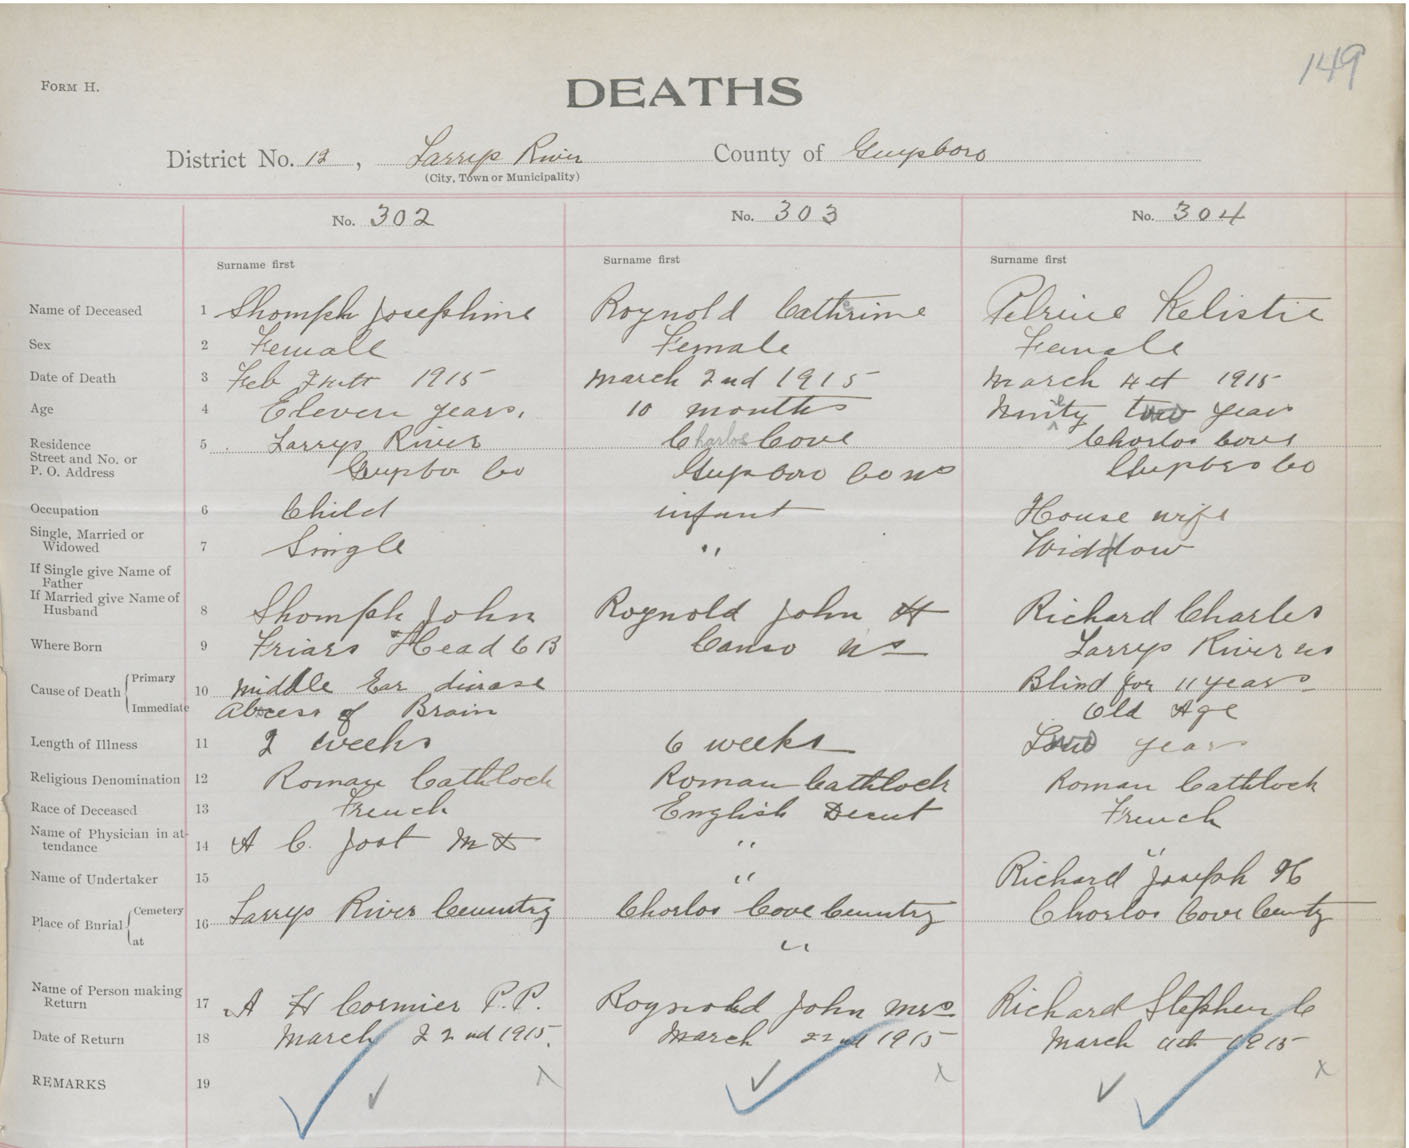 149
FORM H.
DEATHS
District No. 12, Larrys River County of Guysboro
(City, Town or Municipality)
No. 302 No. 303 No. 304
Surname first Surname first Surname first
Name of Deceased 1 Shomph Josephine Roynold Cathrine Pelrine Kelistie
Sex 2 Female Female Female
Date of Death 3 Feb 1915 March 2nd 1915 March 4th 1915
Age 4 Eleven years. 10 months Ninety two years
Residence 5 Larrys River Charlos Cove Chorlos Cove
Street and No. or
P. O. Address Guysbor Co Guysboro Co NS Guysboro Co
Occupation 6 Child infant House wife
Single, Married or
Widowed 7 Single " Widdow
If Single give Name of
Father
If Married give Name of
Husband 8 Shomph John Roynold John H Richard Charles
Where Born 9 Friars Head C B Canso NS Larrys River NS
Cause of Death Primary 10 Middle Ear disease Blind for 11 years
Immediate Abcess of Brain Old Age
Length of Illness 11 2 weeks 6 weeks Two years
Religious Denomination 12 Roman Cathlock Roman Cathlock Roman Cathlock
Race of Deceased 13 French English Decent French
Name of Physician in at-
tendance 14 A C. Jost M D " "
Name of Undertaker 15 " Richard Joseph H
Place of Burial Cemetery 16 Larrys River Cemuntry Chorlos Cove Cemuntry Chorlos Cove
at "
Name of Person making
Return 17 A H Cormier P.P. Roynold John Mrs Richard Stephen C
Date of Return 18 March 22nd 1915. March 22nd 1915 March 11th 1915
REMARKS 19